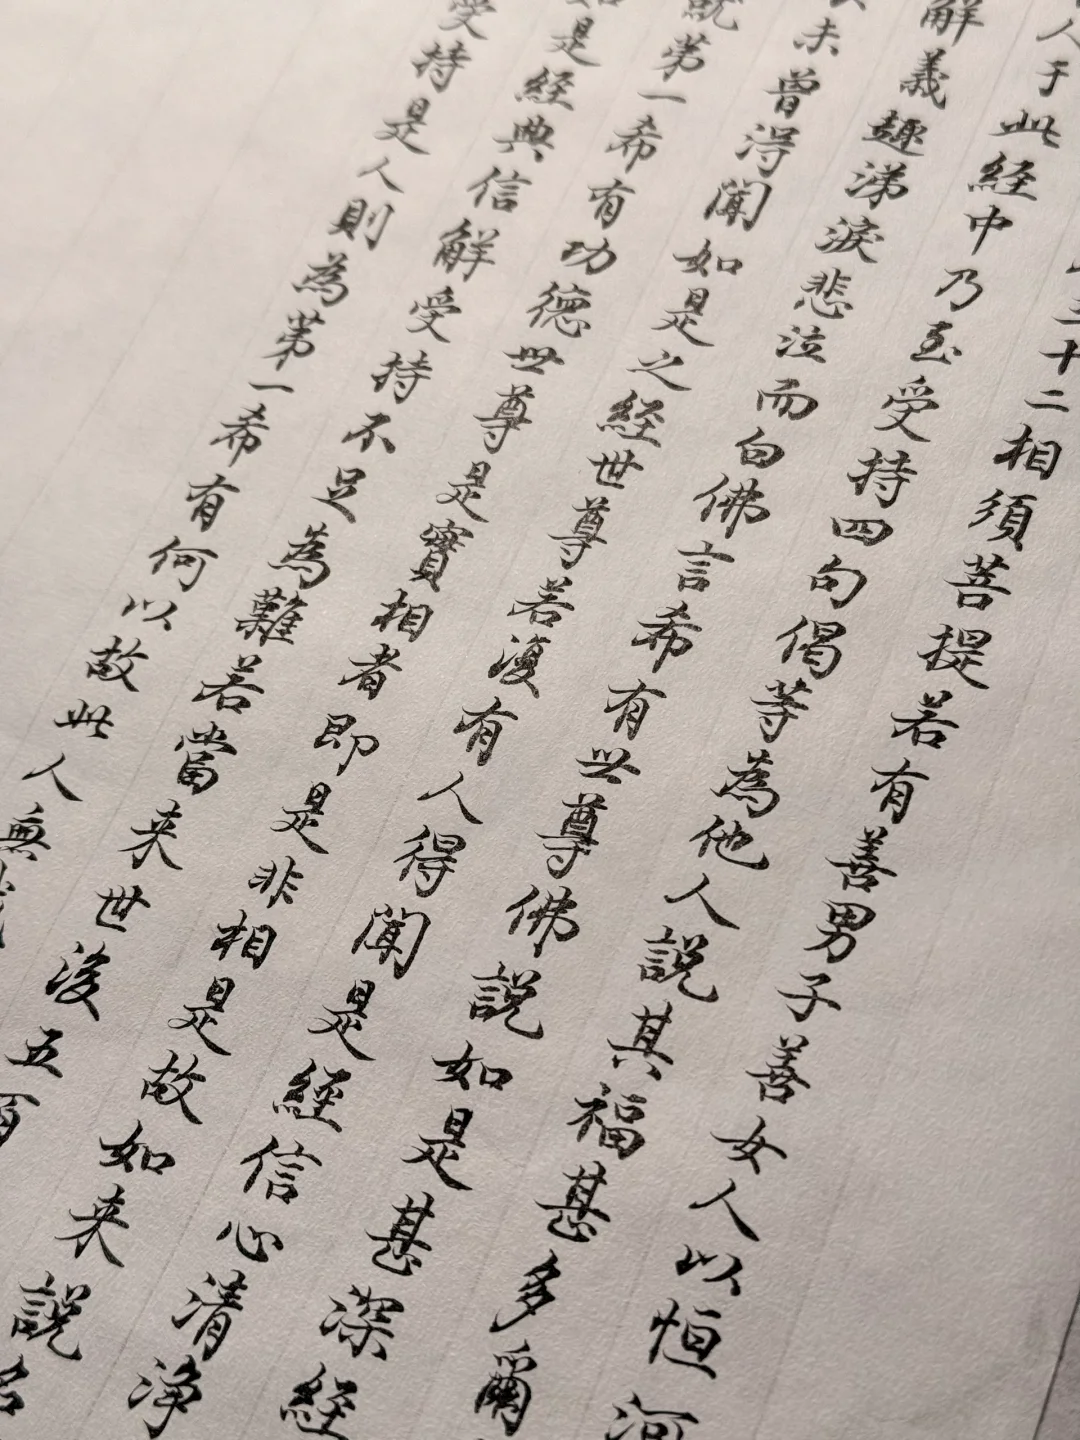 三十二相須菩提若有善男子善女人以恒河
人于此経中乃至受持四句偈等為他人說其福甚多爾
解義趣涕淚悲泣而白佛言希有世尊佛說如是甚深経
未曾得聞如是之経世尊若復有人得聞是經信心清浄
就第一希有功德世尊是實相者即是非相是故如来說名
如是経典信解受持不足為難若當来世後五百
受持是人則為第一希有何以故此人無我